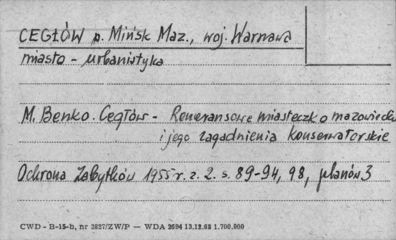 CEGŁÓW p. Mińsk Maz., woj. Warszawa
miasto - urbanistyka
M. Benko. Cegłów - Renesansowe miasteczko mazowieckie
i jego zagadnienia konserwatorskie
Ochrona Zabytków 1955 r. z. 2. s. 89-94, 98, planów 3
CWD - B-15-b, nr 3827/ZW/P — WDA 2694 13.12.62 1.700.000